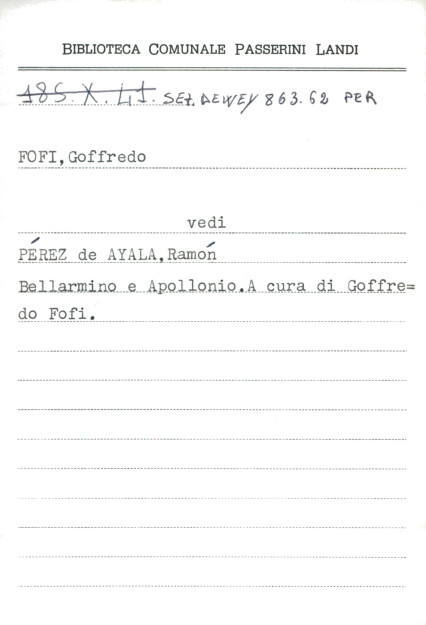 BIBLIOTECA COMUNALE PASSERINI LANDI
185. X. 41. SEZ. DEWEY 863.62 PER
FOFI,Goffredo
vedi
PÉREZ de AYALA,Ramón
Bellarmino e Apollonio.A cura di Goffre=
do Fofi.